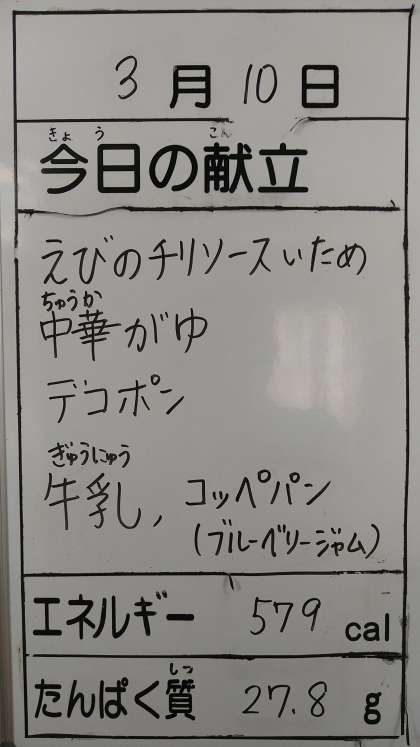 3月10日
きょう こん
今日の献立
えびのチリソースいため
ちゅうか
中華がゆ
デコポン
ぎゅうにゅう
牛乳, コッペパン
(ブルーベリージャム)
エネルギー 579 cal
しつ
たんぱく質 27.8 g